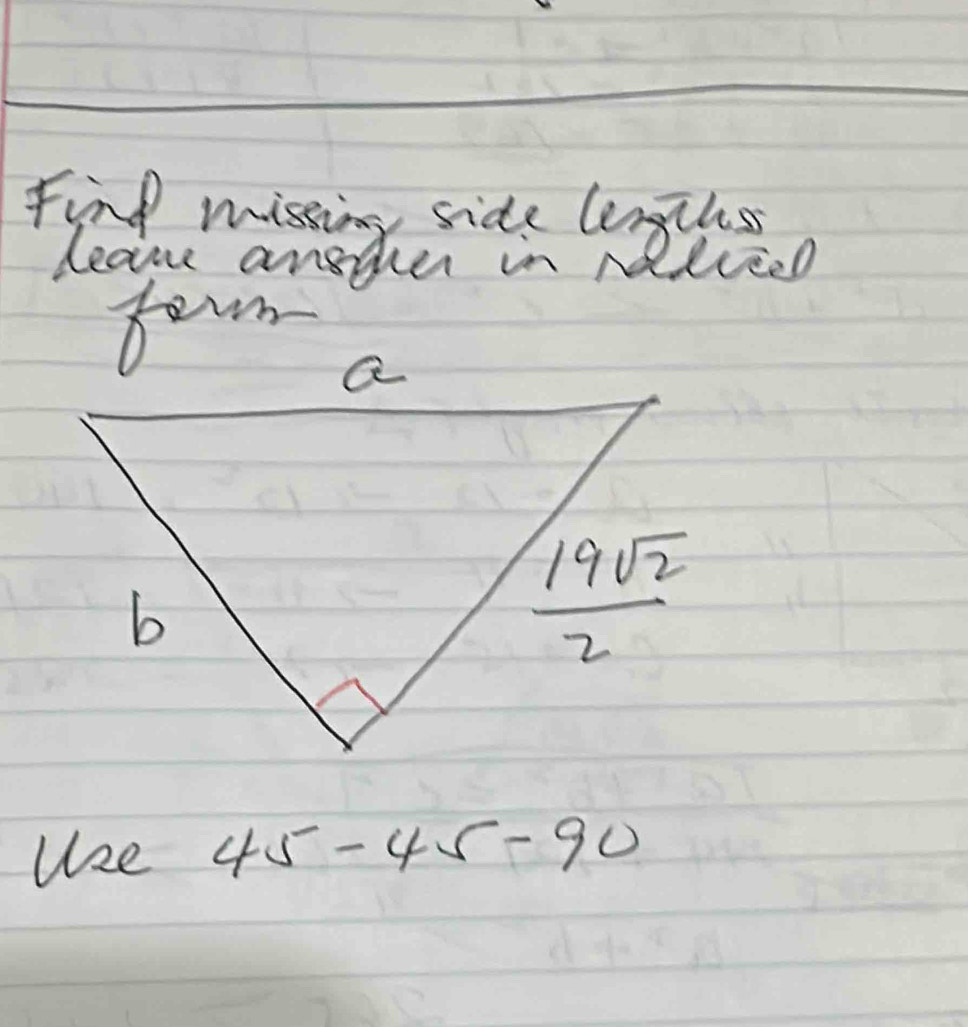 Find missing side lengths
leave answer in radical
form
a
b
19√2
2
Use 45-45-90